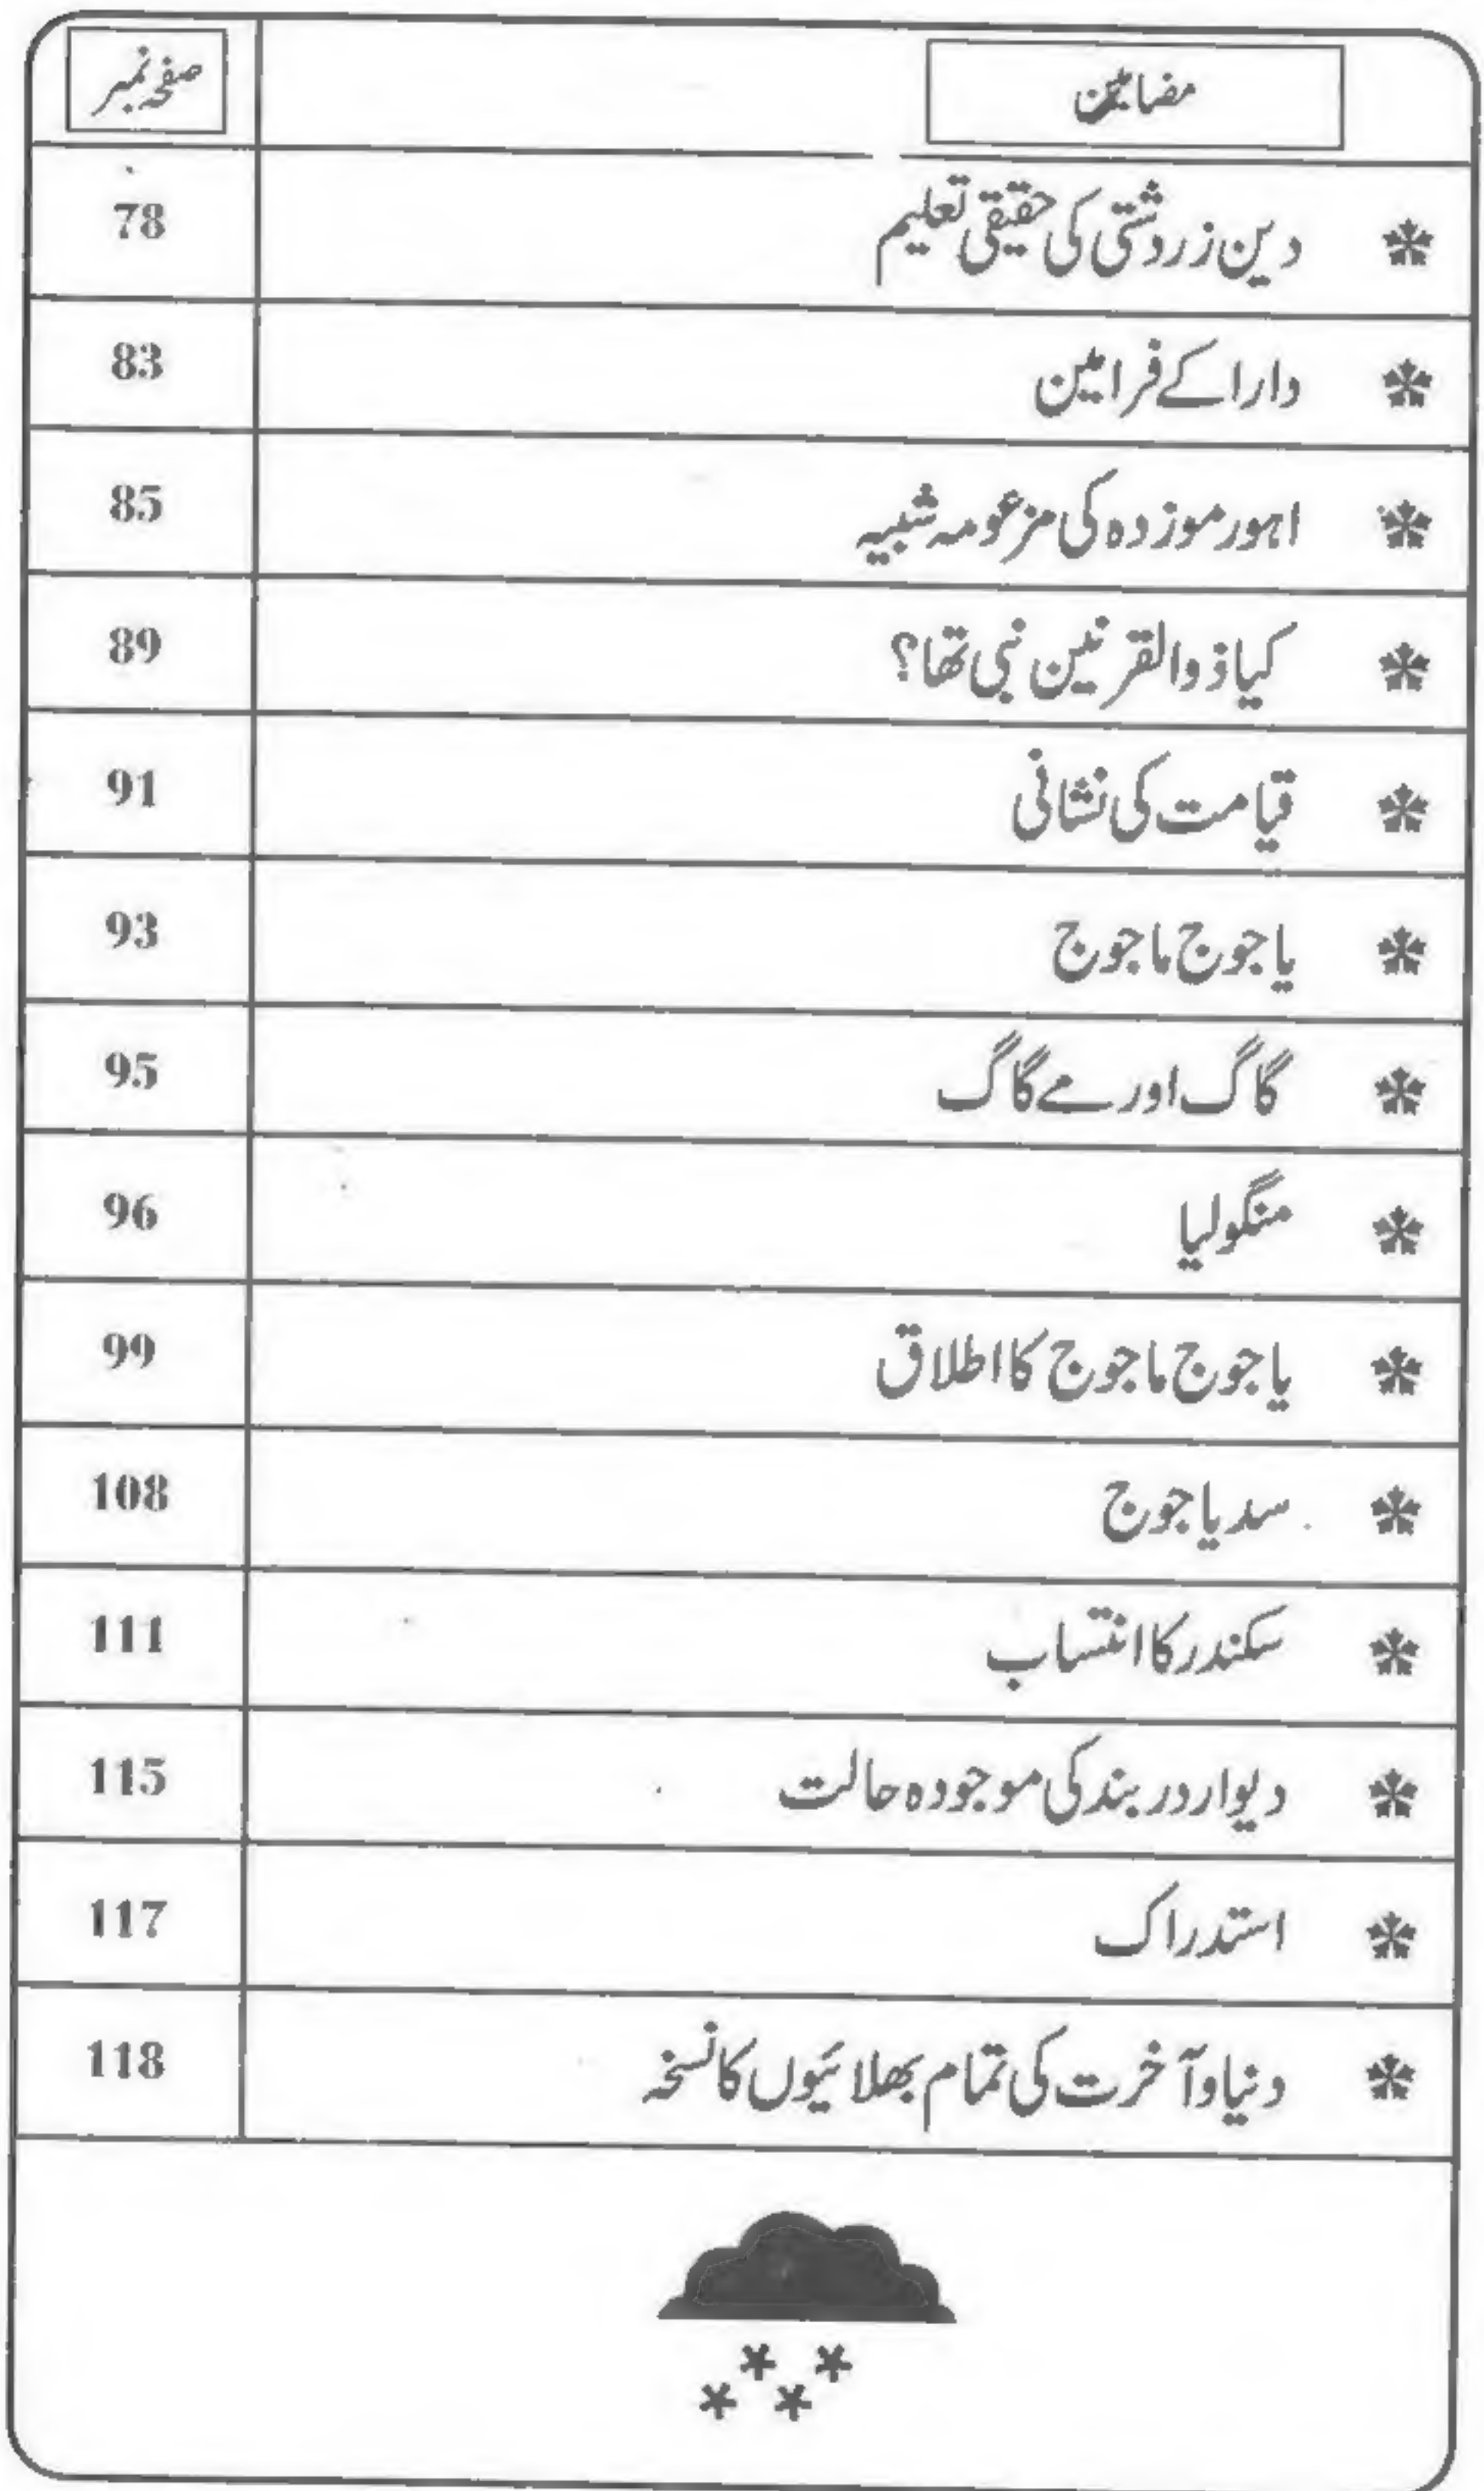 مضامین صفحہ نمبر
دین زردشتی کی حقیقی تعلیم 78
دارا کے فرامین 83
اہور موزدہ کی مزعومہ شبیہ 85
کیا ذوالقرنین نبی تھا؟ 89
قیامت کی نشانی 91
یاجوج ماجوج 93
گاگ اور مے گاگ 95
منگولیا 96
یاجوج ماجوج کا اطلاق 99
سد یاجوج 108
سکندر کا انتساب 111
دیوار دربند کی موجودہ حالت 115
استدراک 117
دنیا و آخرت کی تمام بھلائیوں کا نسخہ 118